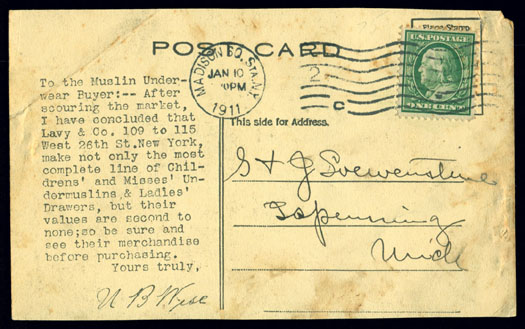 Place Stamp
U.S. POSTAGE
POST CARD
MADISON SQ. STA. N.Y.
JAN 10
1911
2
C
ONE CENT
This side for Address.
To the Muslin Under-
wear Buyer:-- After
scouring the market,
I have concluded that
Lavy & Co. 109 to 115
West 26th St.New York,
make not only the most
complete line of Chil-
drens' and Misses' Un-
dermuslins,& Ladies'
Drawers, but their
values are second to
none;so be sure and
see their merchandise
before purchasing.
Yours truly,
U B Wyse
S & J
Ispenning
Mich